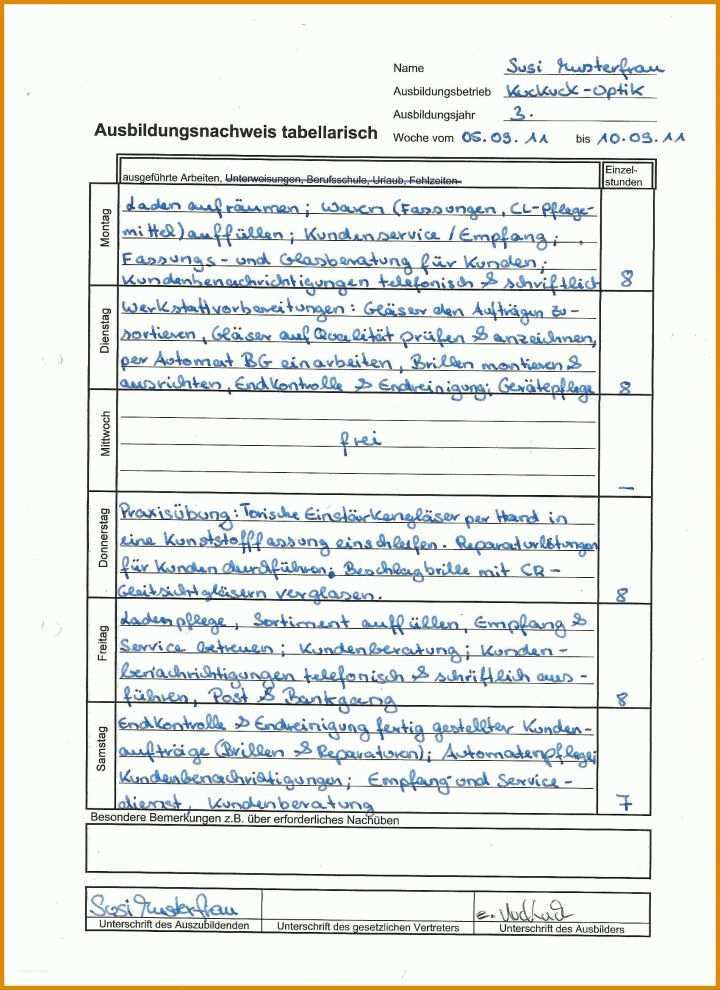 Name Susi Musterfrau
Ausbildungsbetrieb Kuckuck-Optik
Ausbildungsjahr 3.
Ausbildungsnachweis tabellarisch Woche vom 05.09.11 bis 10.09.11
ausgeführte Arbeiten, Unterweisungen, Berufsschule, Urlaub, Fehlzeiten
Einzel-
stunden
Montag
Laden aufräumen; Waren (Fassungen, CL-Pflege-
mittel) auffüllen; Kundenservice / Empfang;
Fassungs- und Glasberatung für Kunden;
Kundenbenachrichtigungen telefonisch & schriftlich 8
Dienstag
Werkstattvorbereitungen: Gläser den Aufträgen zu-
sortieren, Gläser auf Qualität prüfen & anzeichnen,
per Automat BG einarbeiten, Brillen montieren &
ausrichten, Endkontrolle & Endreinigung; Gerätepflege 8
Mittwoch
frei
–
Donnerstag
Praxisübung: Torische Einstärkengläser per Hand in
eine Kunststofffassung einschleifen. Reparaturlötungen
für Kunden durchführen; Beschlagbrille mit CR-
Gleitsichtgläsern verglasen. 8
Freitag
Ladenpflege, Sortiment auffüllen, Empfang &
Service betreuen; Kundenberatung; Kunden-
benachrichtigungen telefonisch & schriftlich aus-
führen, Post & Bankgang 8
Samstag
Endkontrolle & Endreinigung fertig gestellter Kunden-
aufträge (Brillen & Reparaturen); Automatenpflege;
Kundenbenachrichtigungen; Empfang und Service-
dienst, Kundenberatung 7
Besondere Bemerkungen z.B. über erforderliches Nachüben
Susi Musterfrau
Unterschrift des Auszubildenden
Unterschrift des gesetzlichen Vertreters
Unterschrift des Ausbilders